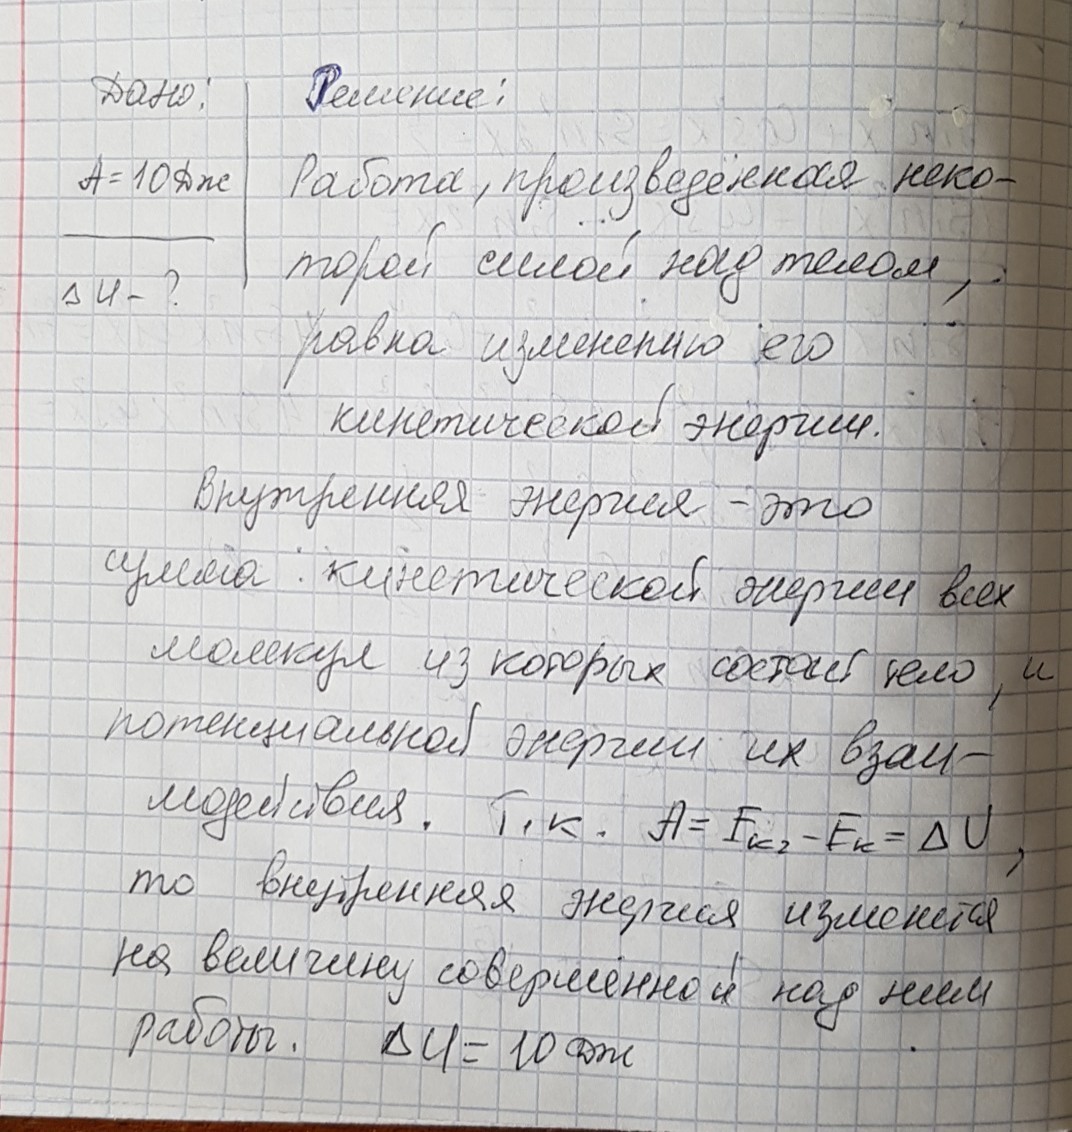 Дано:
Решение:
A = 10 Дж
Работа, произведённая неко-
торой силой над телом,
ΔU - ?
равна изменению его
кинетической энергии.
Внутренняя энергия - это
сумма кинетической энергии всех
молекул из которых состоит тело, и
потенциальной энергии их взаи-
модействия. Т.к. A = Eк₂ - Eк = ΔU,
то внутренняя энергия изменится
на величину совершённой над ним
работы. ΔU = 10 Дж